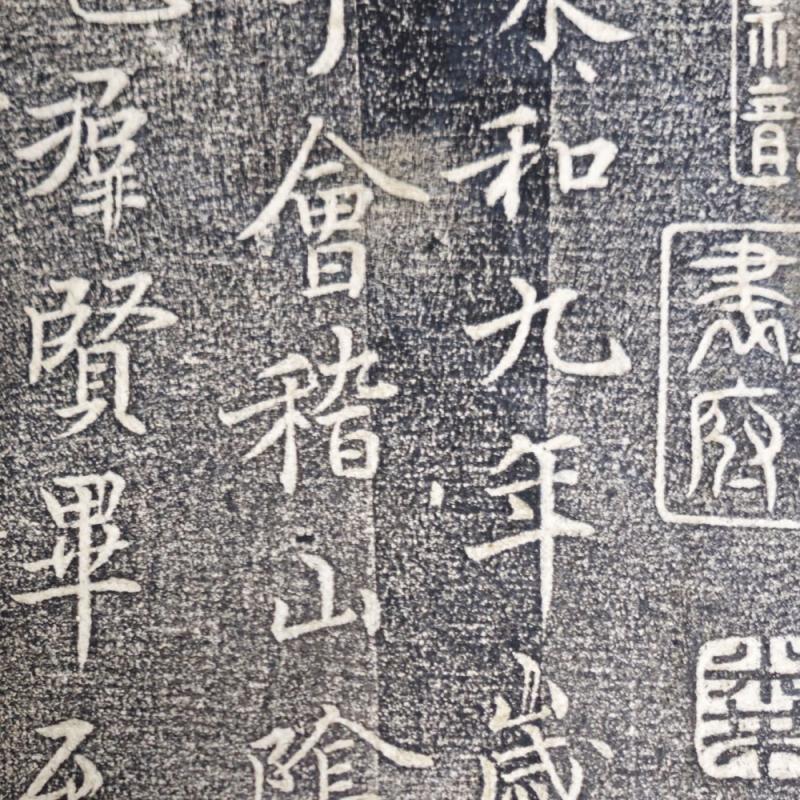 書府
永和九年歲
于會稽山陰
也羣賢畢至